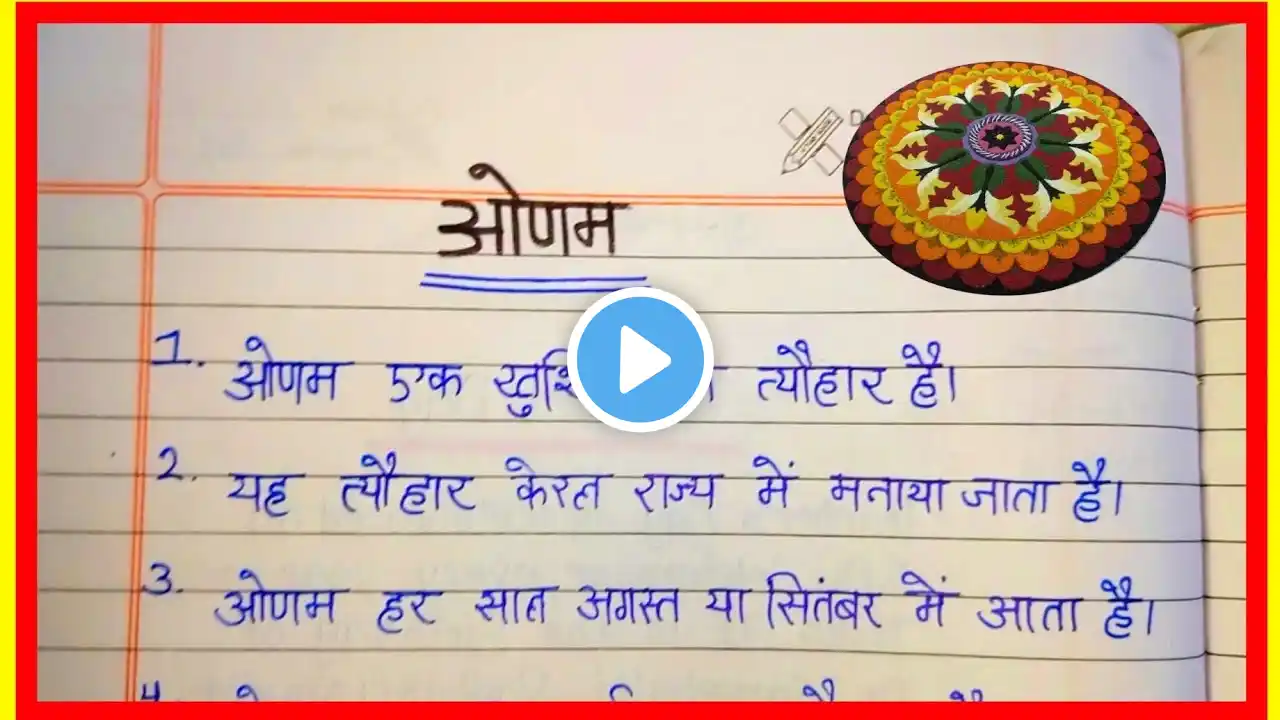 ओणम
1. ओणम एक त्यौहार है।
2. यह त्यौहार केरल राज्य में मनाया जाता है।
3. ओणम हर साल अगस्त या सितंबर में आता है।
4.